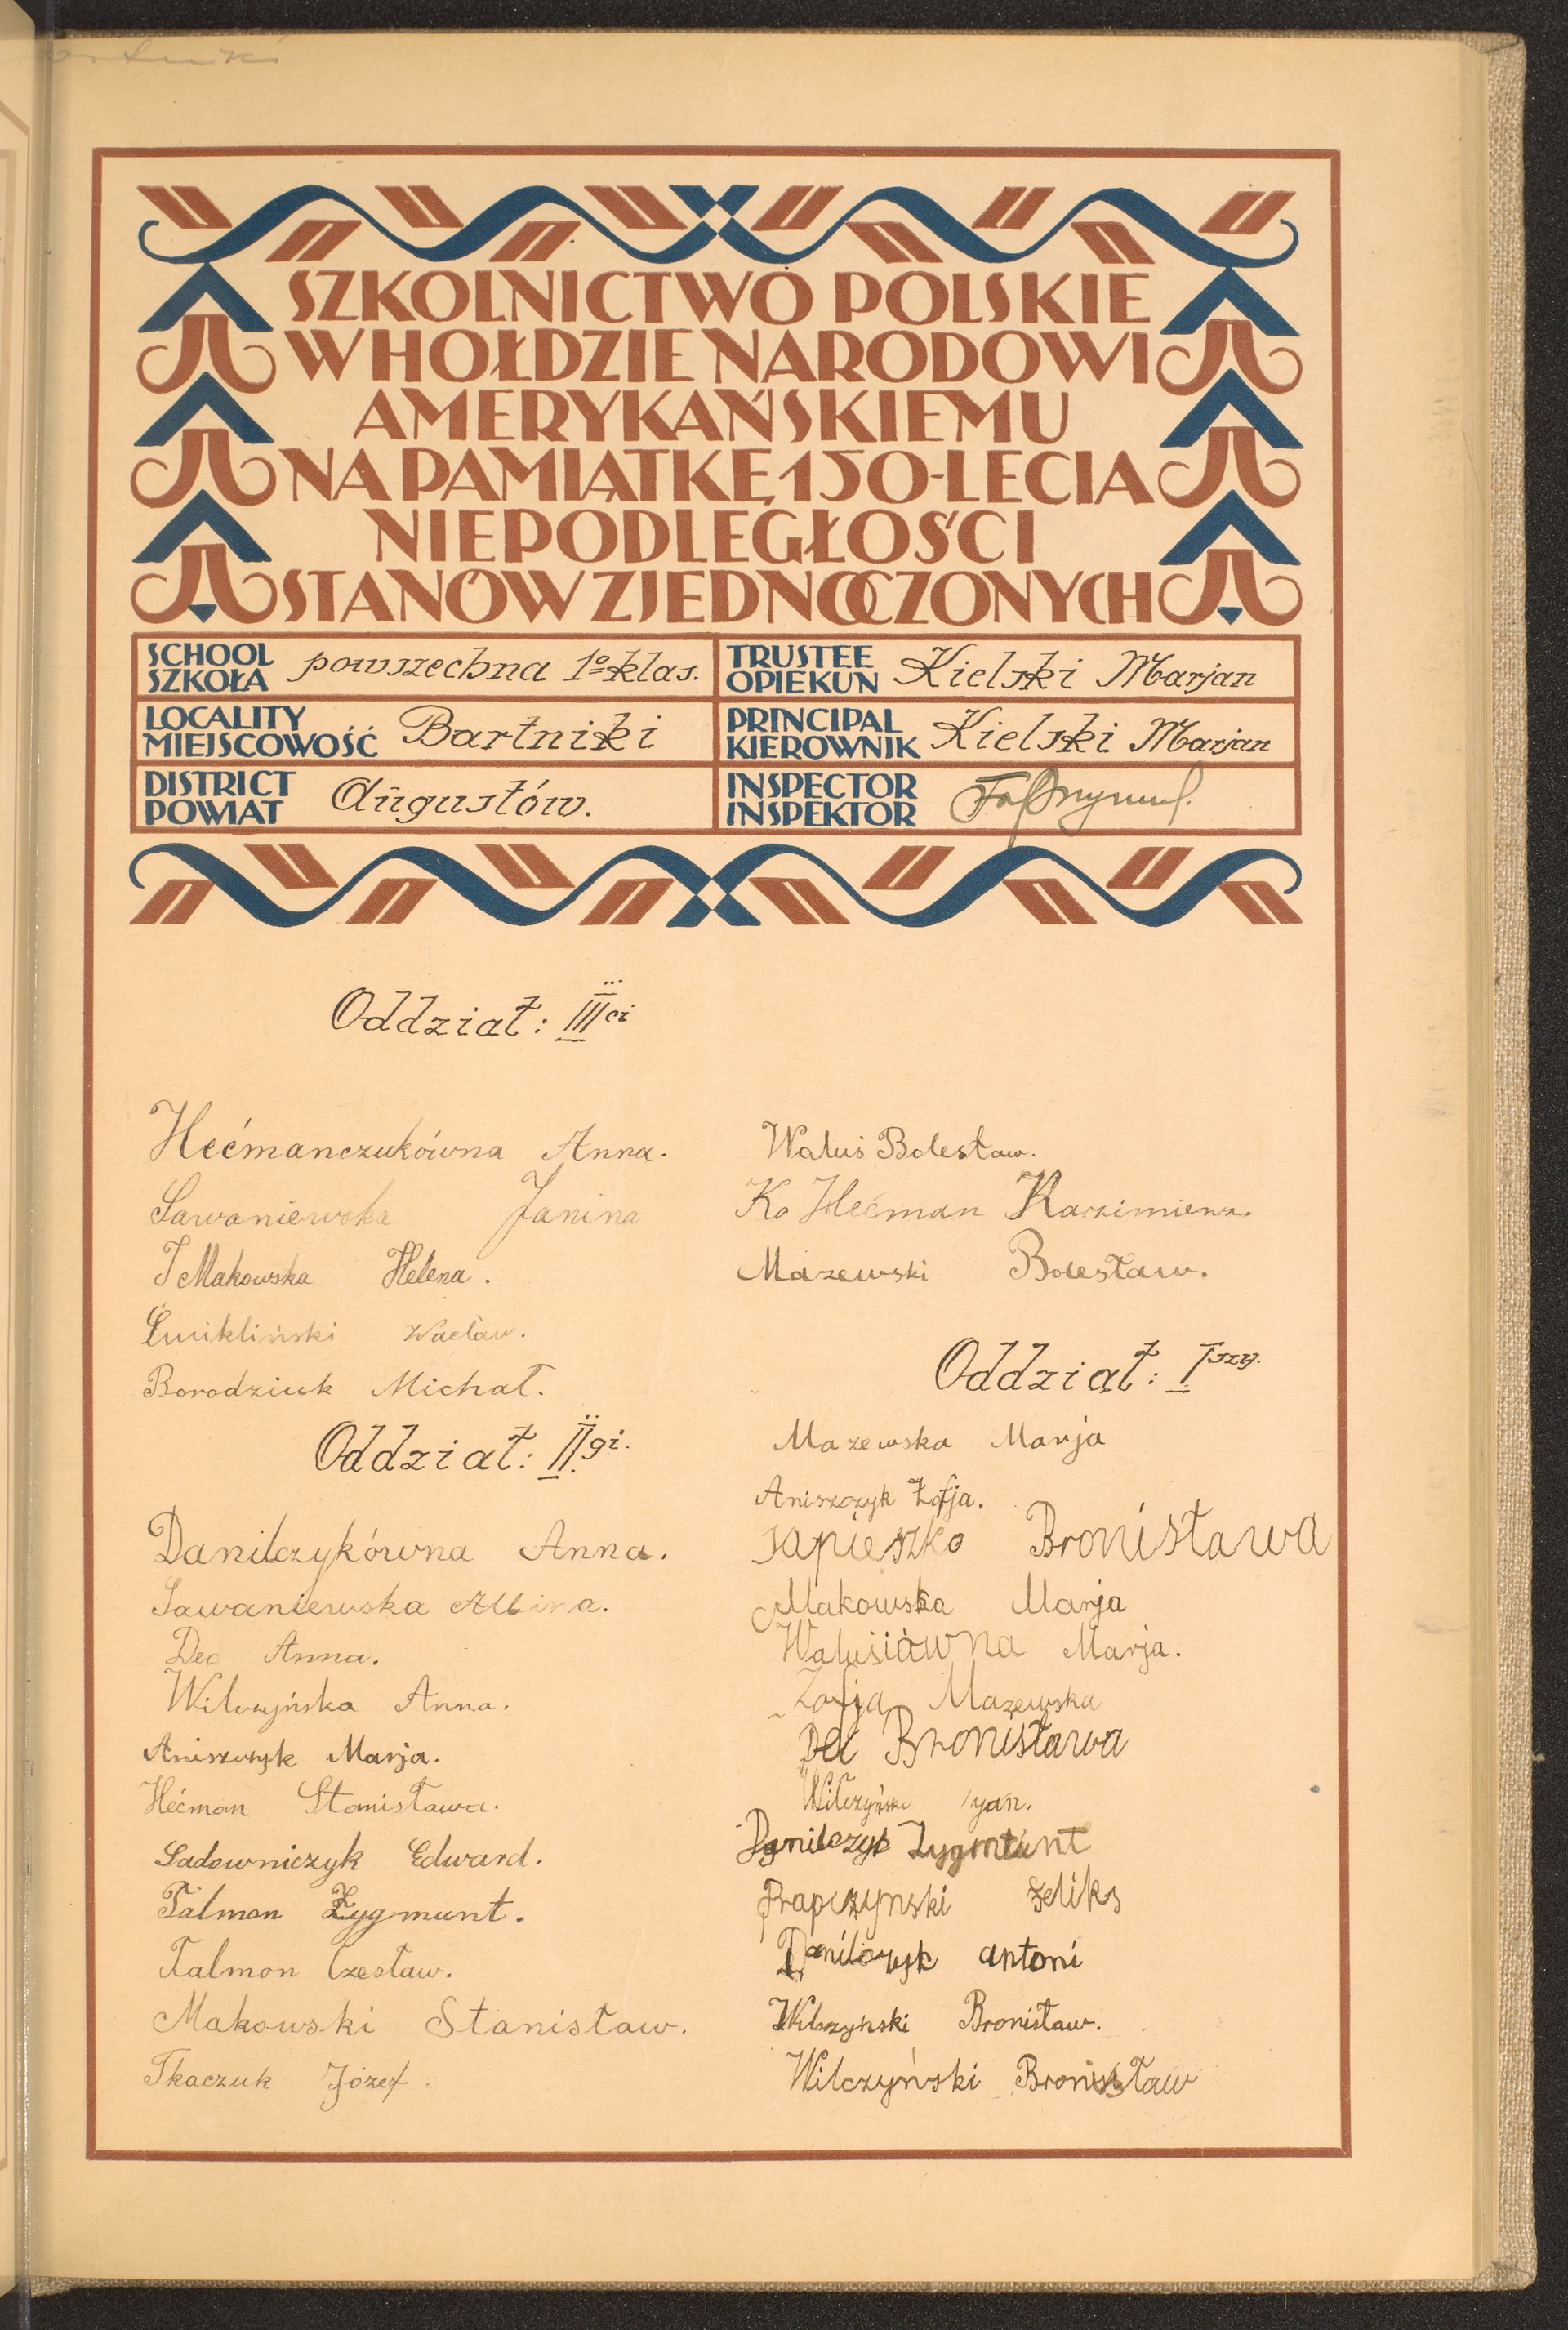 SZKOLNICTWO POLSKIE
W HOŁDZIE NARODOWI
AMERYKAŃSKIEMU
NA PAMIĄTKĘ 150-LECIA
NIEPODLEGŁOŚCI
STANÓW ZJEDNOCZONYCH
SCHOOL
SZKOŁA powszechna 1º klas.
TRUSTEE
OPIEKUN Kielski Marjan
LOCALITY
MIEJSCOWOŚĆ Bartniki
PRINCIPAL
KIEROWNIK Kielski Marjan
DISTRICT
POWIAT Augustów.
INSPECTOR
INSPEKTOR
Oddział: III ci
Hećmanczukówna Anna.
Sawaniewska Janina
Makowska Helena.
Ćwikliński Wacław.
Borodziuk Michał.
Oddział: II gi.
Danilczykówna Anna.
Sawaniewska Albina.
Dec Anna.
Wilczyńska Anna.
Aniszczyk Marja.
Hećman Stanisława.
Sadowniczyk Edward.
Talmon Zygmunt.
Talmon Czesław.
Makowski Stanisław.
Tkaczuk Józef.
Waluś Bolesław.
Ko Hećman Kazimierz.
Mazewski Bolesław.
Oddział: I szy.
Mazewska Marja
Aniszczyk Zofja.
Sapieszko Bronisława
Makowska Marja
Walusiawna Marja.
Zofja Mazewska
Dec Bronisława
Wilczyński Jan.
Danilczyk Zygmunt
Rapczynski Feliks
Danilczyk Antoni
Wilczynski Bronisław.
Wilczyński Bronisław